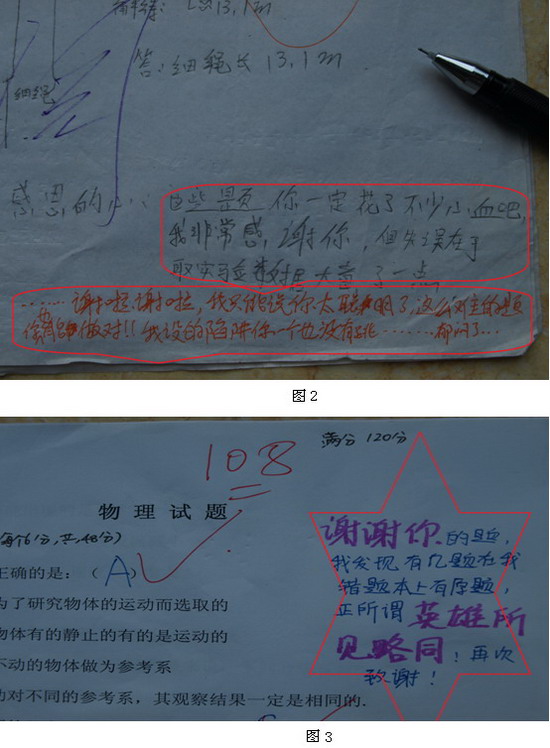 13.1m
答:细绳长13.1m
细绳
感恩的心:
这些题你一定花了不少心血吧,
我非常感谢你,但失误在于
大意了一点
……谢啦谢啦,我只能说你太聪明了,这么难的题
你都做对!!我设的陷阱你一个也没有跳………郁闷了…
图2
108
满分 120分
物理试题
(每个6分,共48分)
正确的是:(A)
为了研究物体的运动而选取的
物体有的静止的有的是运动的
不动的物体做为参考系
动对不同的参考系,其观察结果一定是相同的.
谢谢你的题,
我发现有几题在我
错题本上有原题,
正所谓英雄所
见略同!再次
致谢!
图3